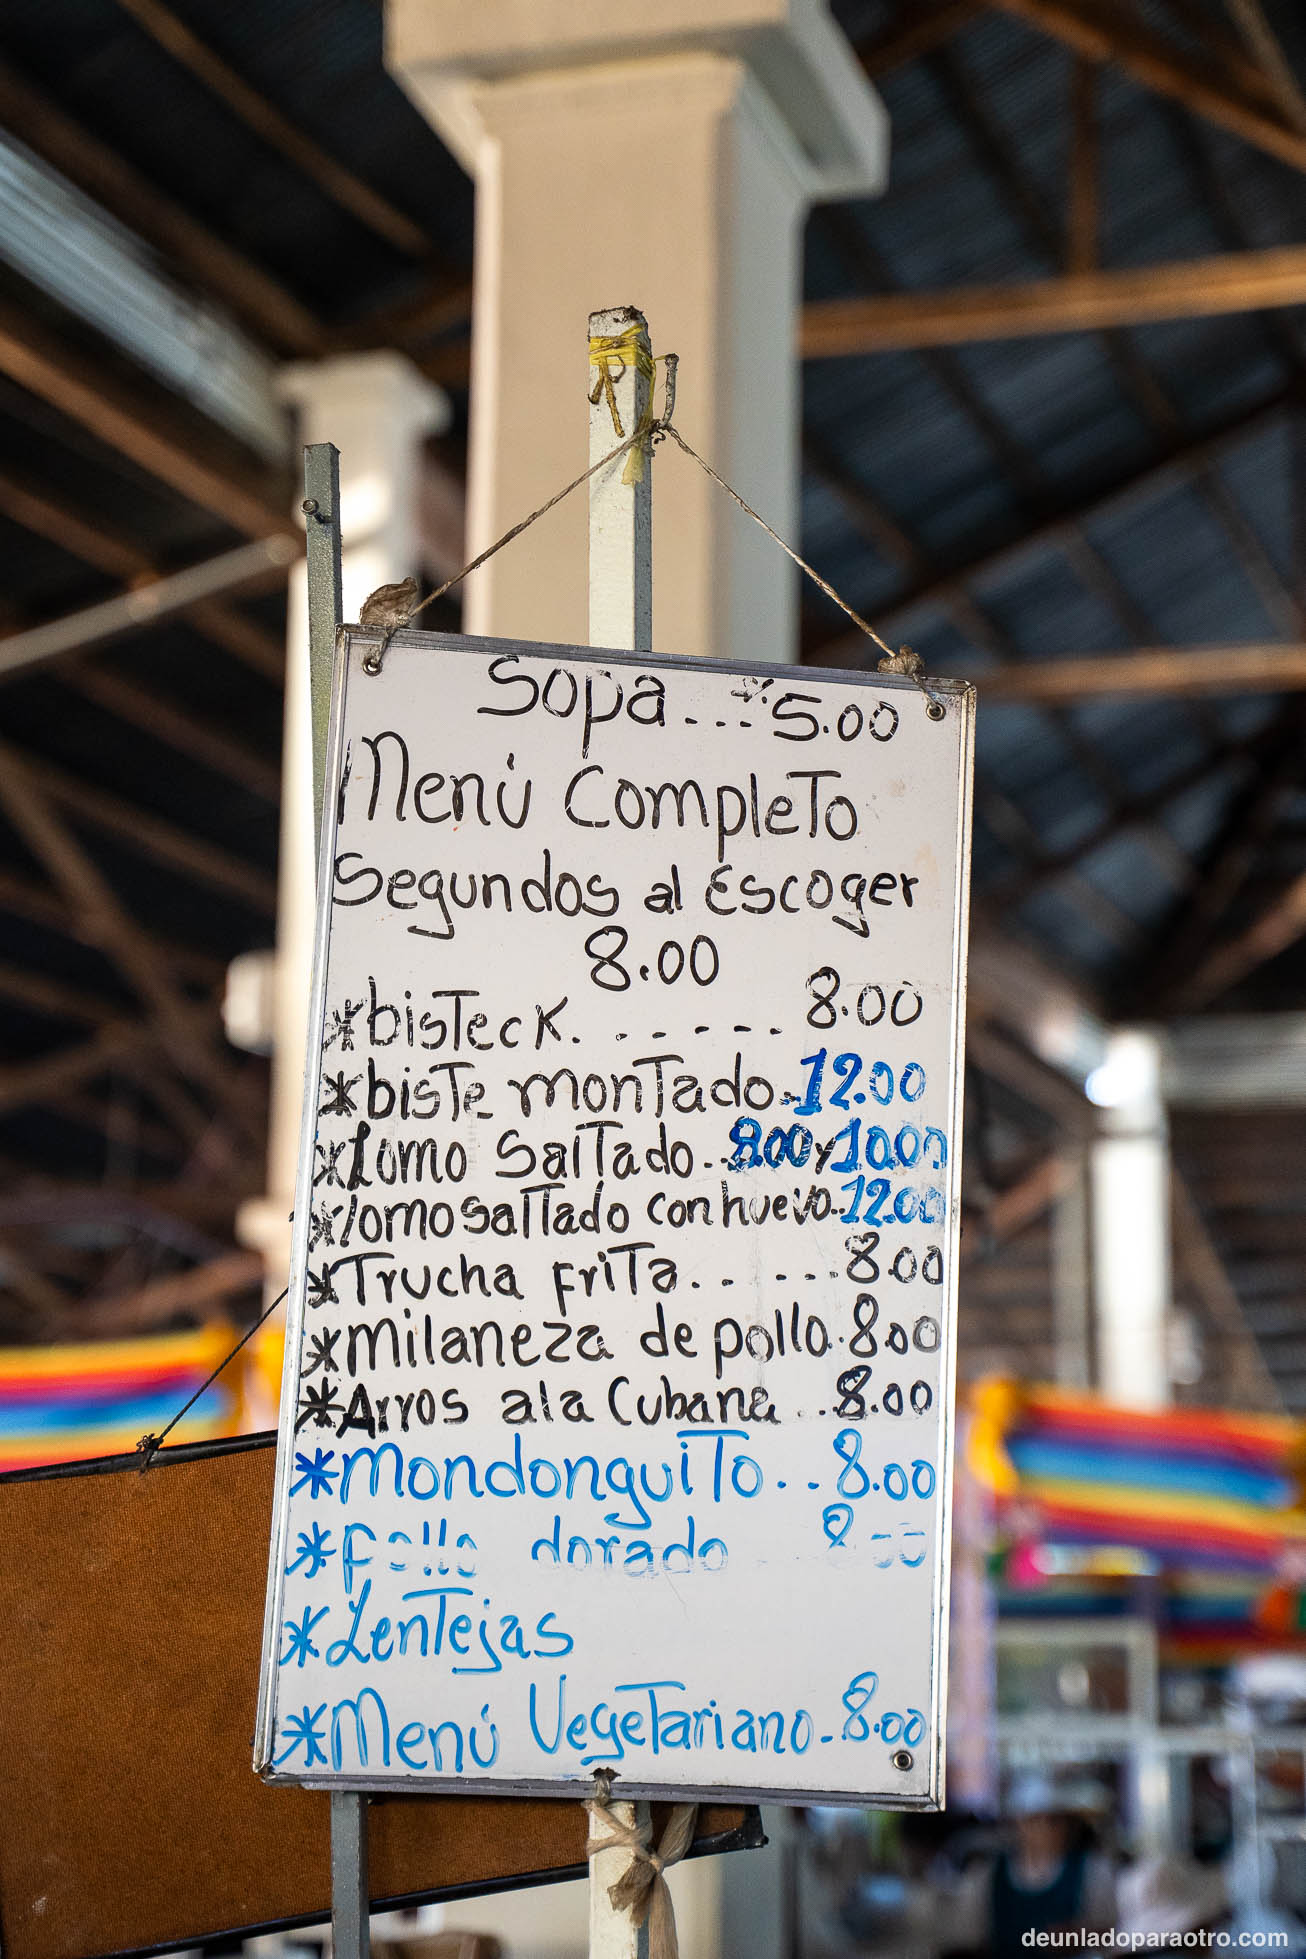 Sopa...*5.00
Menú Completo
Segundos al Escoger
8.00
*bisteck. ------ 8.00
*biste montado..12.00
*Lomo Saltado..8.00 y 10.00
*lomo saltado con huevo..12.00
*Trucha frita.. ....8.00
*milaneza de pollo.8.00
*Arros ala Cubana ..8.00
*mondonguito..8.00
*pollo dorado . 8.00
*Lentejas
*Menú Vegetariano.8.00
deunladoparaotro.com